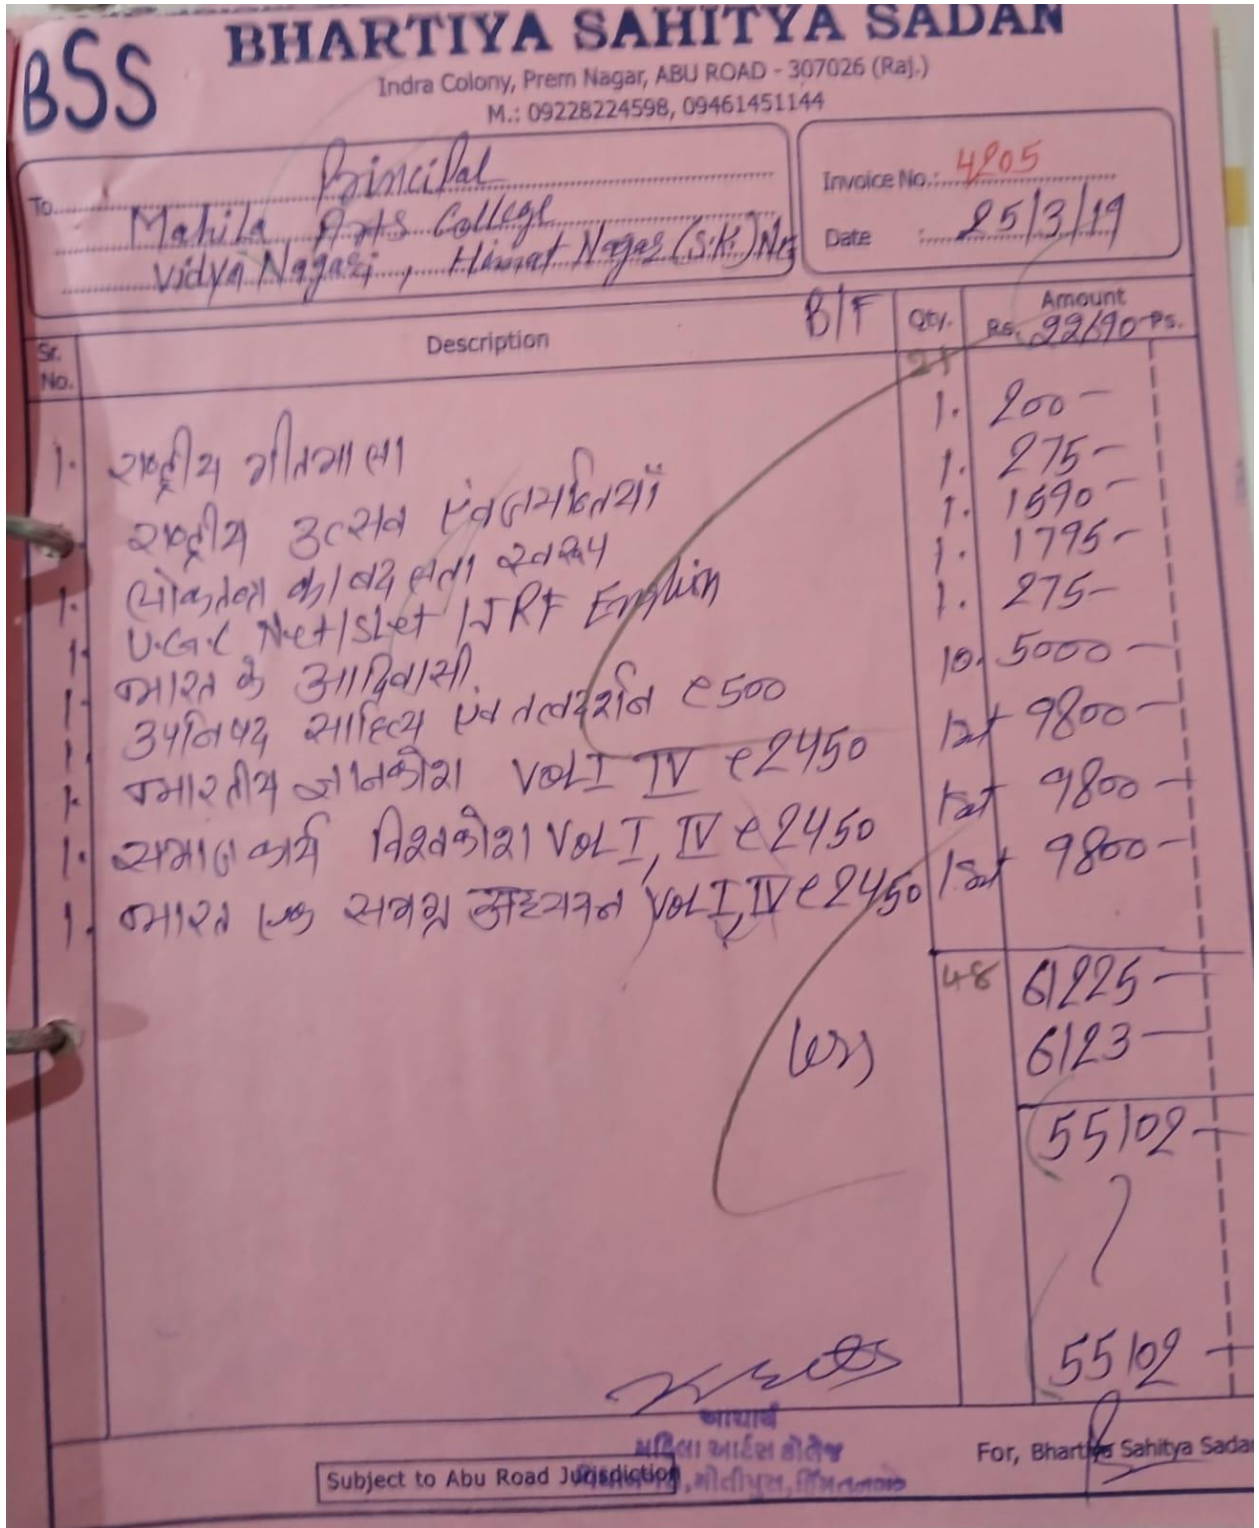 BSS
BHARTIYA SAHITYA SADAN
Indra Colony, Prem Nagar, ABU ROAD - 307026 (Raj.)
M.: 09228224598, 09461451144
To Principal
Mahila Arts College
Vidya Nagari, Himat Nagar (S.K.)
Invoice No.: 4205
Date : 25/3/19
Sr. No. Description B/F Qty. Amount
Rs. 22690 Ps.
21
1. राष्ट्रीय गीतमाला 1. 200-
राष्ट्रीय उत्सव एंव जयन्तियाँ 1. 275-
1. लोकतन्त्र का बदलता स्वरूप 1. 1590-
1. U.G.C Net/Slet/JRF English 1. 1795-
1. भारत के आदिवासी 1. 275-
1. उपनिषद साहित्य एंव तत्वदर्शन @500 10. 5000-
1. भारतीय ज्ञानकोश VOL I IV @2450 1Set 9800-
1. समाज कार्य विश्वकोश VOL I, IV @2450 1Set 9800-
1. भारत एक समग्र अध्ययन VOL I, IV @2450 1Set 9800-
48 61225-
Less 6123-
55102-
55102-
આચાર્ય
મહિલા આર્ટસ કોલેજ
મોતીપુરા, હિંમતનગર
For, Bhartiya Sahitya Sadan
Subject to Abu Road Jurisdiction